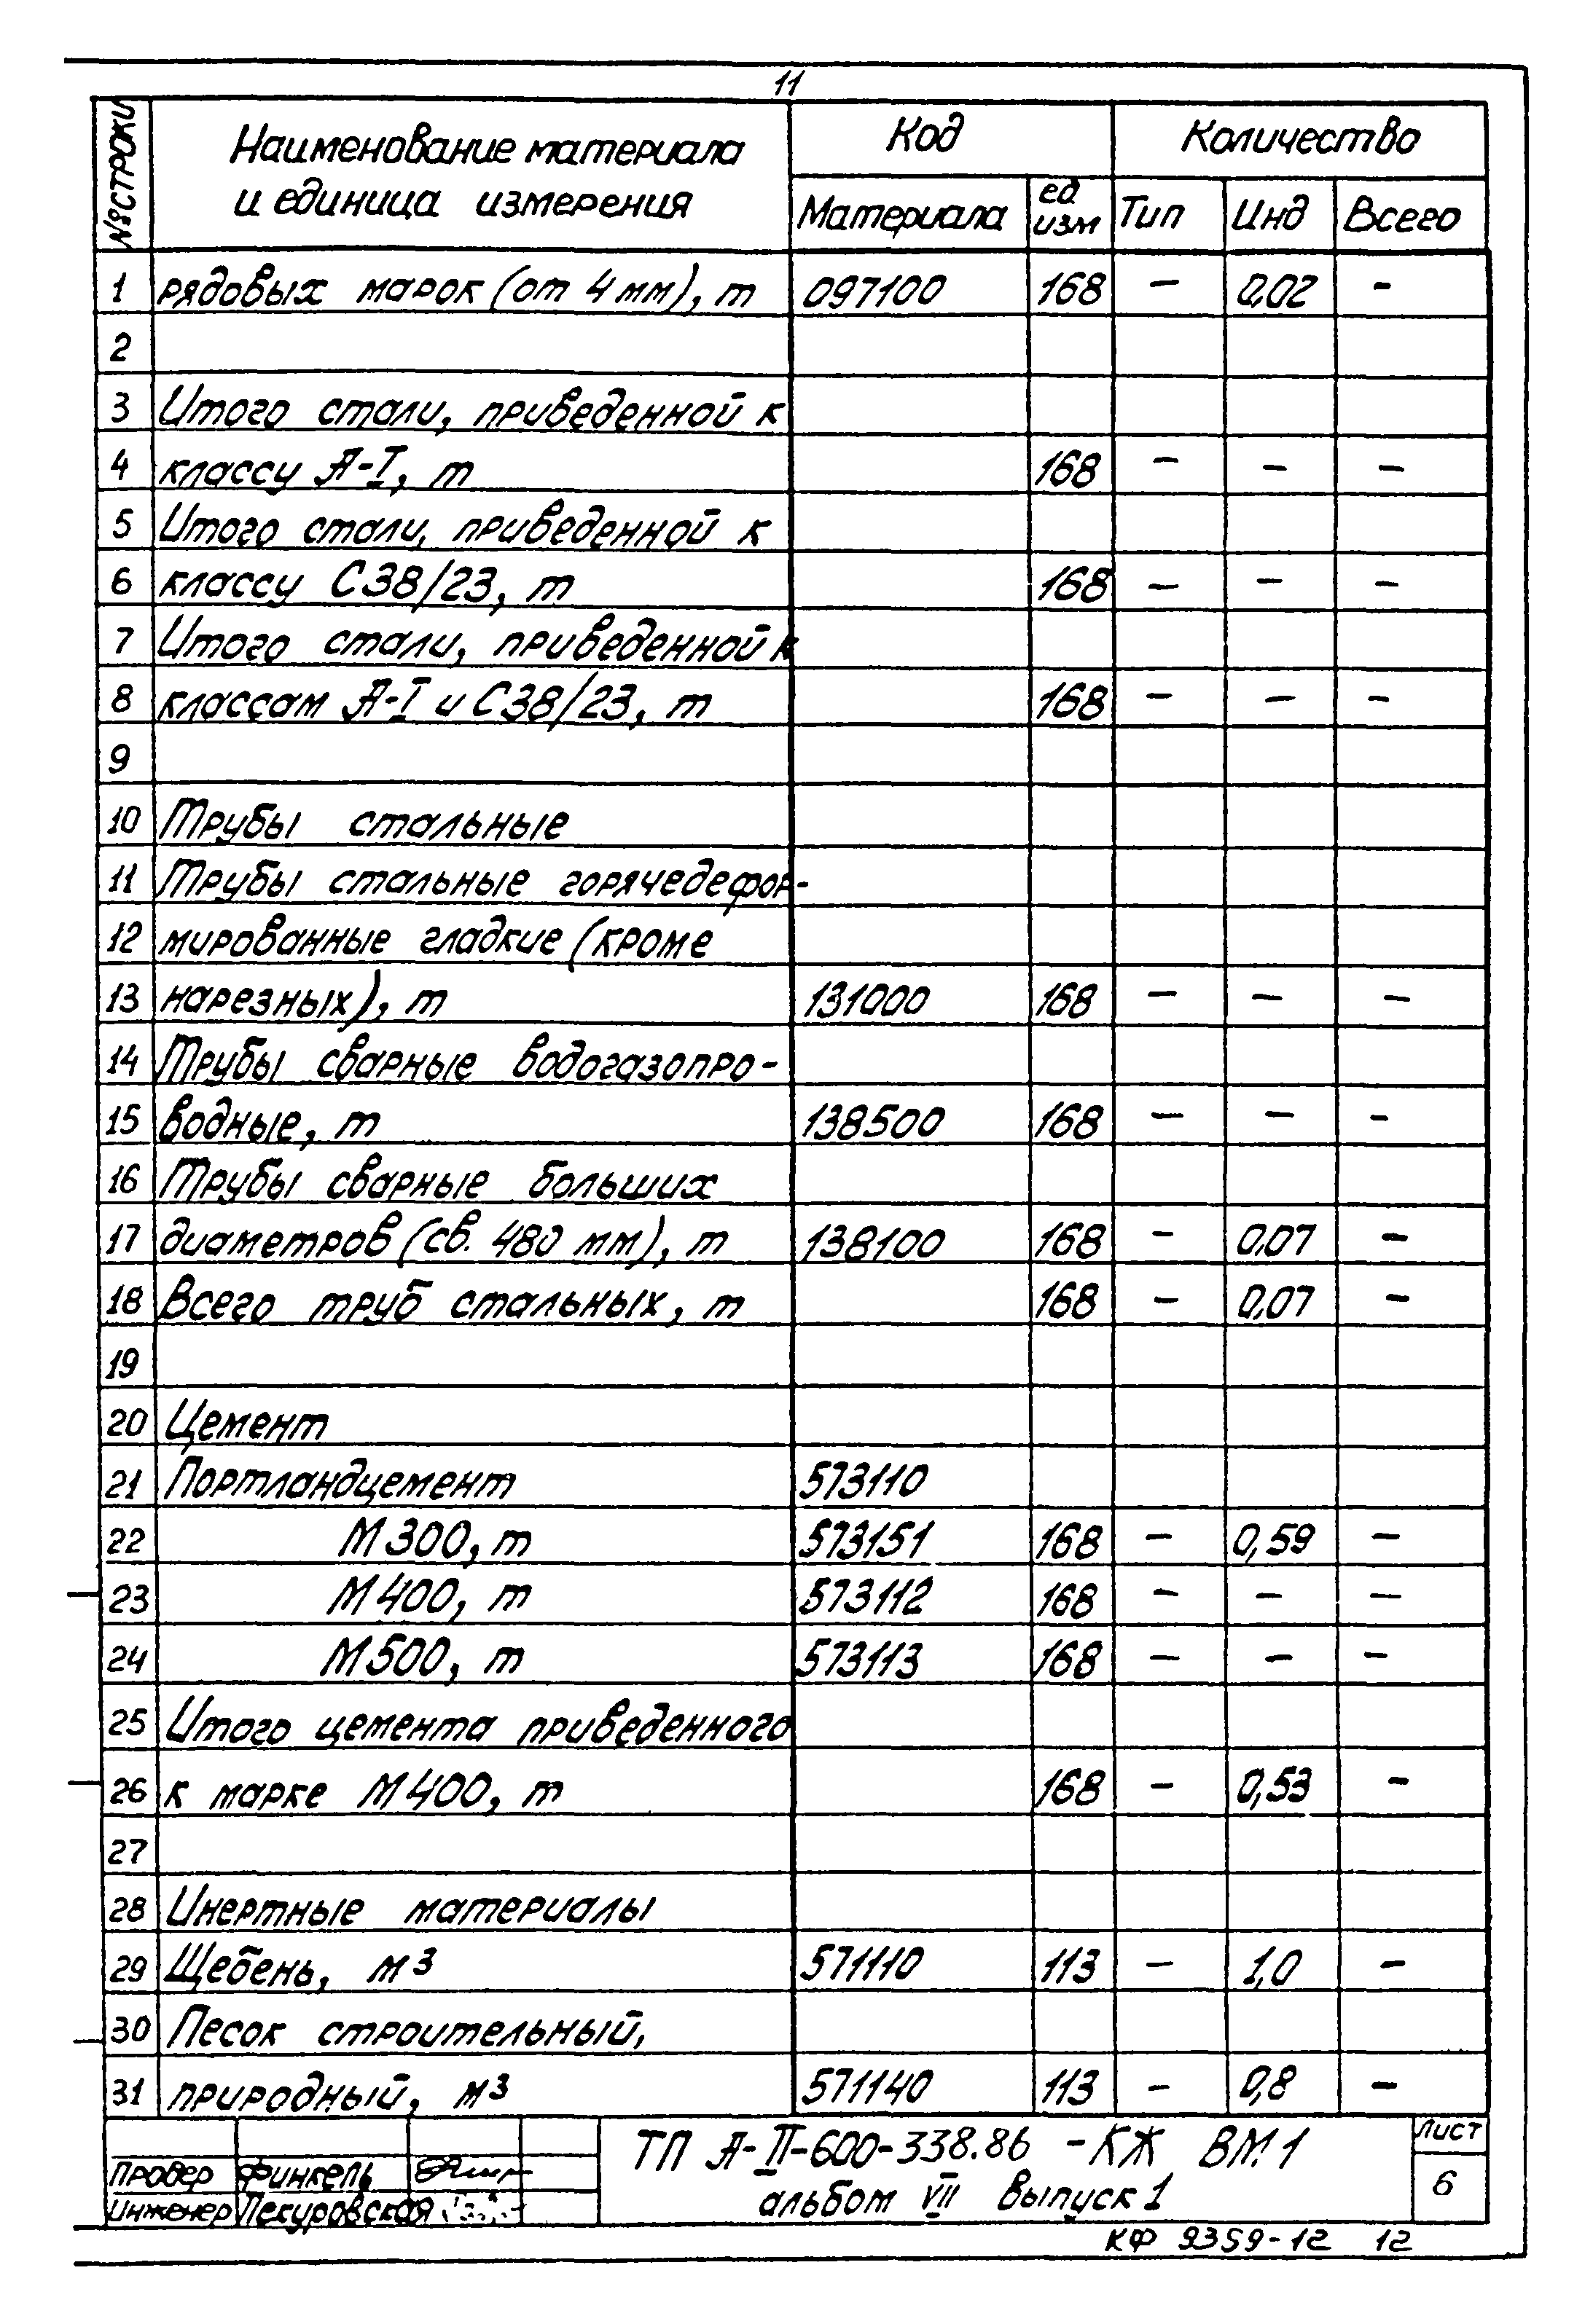 11
№ строки Наименование материала и единица измерения Код Количество
Материала ед изм Тип Инд Всего
1 рядовых марок (от 4 мм), т 097100 168 – 0,02 –
2
3 Итого стали, приведенной к
4 классу А-I, т 168 – – –
5 Итого стали, приведенной к
6 классу С38/23, т 168 – – –
7 Итого стали, приведенной к
8 классам А-I и С38/23, т 168 – – –
9
10 Трубы стальные
11 Трубы стальные горячедефор-
12 мированные гладкие (кроме
13 нарезных), т 131000 168 – – –
14 Трубы сварные водогазопро-
15 водные, т 138500 168 – – –
16 Трубы сварные больших
17 диаметров (св. 480 мм), т 138100 168 – 0,07 –
18 Всего труб стальных, т 168 – 0,07 –
19
20 Цемент
21 Портландцемент 573110
22 М300, т 573151 168 – 0,59 –
23 М400, т 573112 168 – – –
24 М500, т 573113 168 – – –
25 Итого цемента приведенного
26 к марке М400, т 168 – 0,53 –
27
28 Инертные материалы
29 Щебень, м3 571110 113 – 1,0 –
30 Песок строительный,
31 природный, м3 571140 113 – 0,8 –
ТП А-II-600-338.86 -КЖ ВМ1
альбом VII Выпуск 1
Лист
6
Провер Финкель
Инженер Пекуровская
КФ 9359-12 12